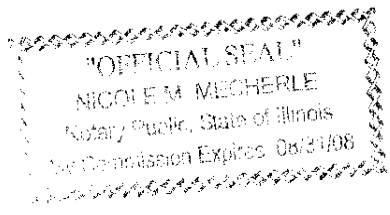 "OFFICIAL SEAL"
NICOLE M. MECHERLE
Notary Public, State of Illinois
My Commission Expires 08/31/08